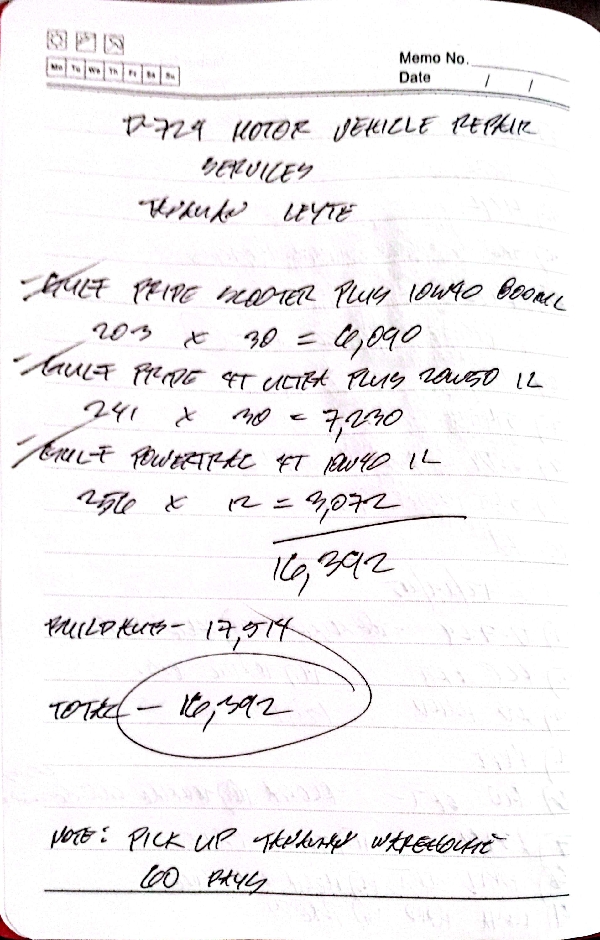 Mo Tu We Th Fr Sa Su
Memo No.
Date / /
D-729 MOTOR VEHICLE REPAIR
SERVICES
TANAUAN LEYTE
- GULF PRIDE SCOOTER PLUS 10W40 800ML
203 x 30 = 6,090
- GULF PRIDE 4T ULTRA PLUS 20W50 1L
241 x 30 = 7,230
- GULF POWERTRAC 4T 10W40 1L
256 x 12 = 3,072
16,392
BUILDHUB - 17,514
TOTAL - 16,392
NOTE: PICK UP TANAUAN WAREHOUSE
60 DAYS